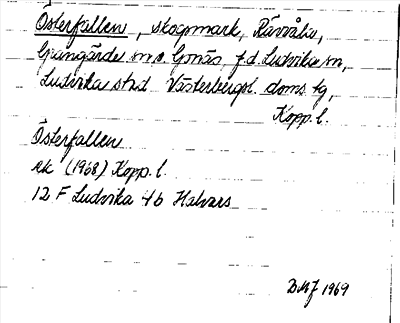 Österfallen, skogsmark, Rävvåla,
Grangärde sn o. Gonäs, f.d. Ludvika sn,
Ludvika stad Västerbergsl. doms. tg,
Kopp. l.
Österfallen
ek (1968) Kopp. l.
12 F Ludvika 4b Halvars
1969